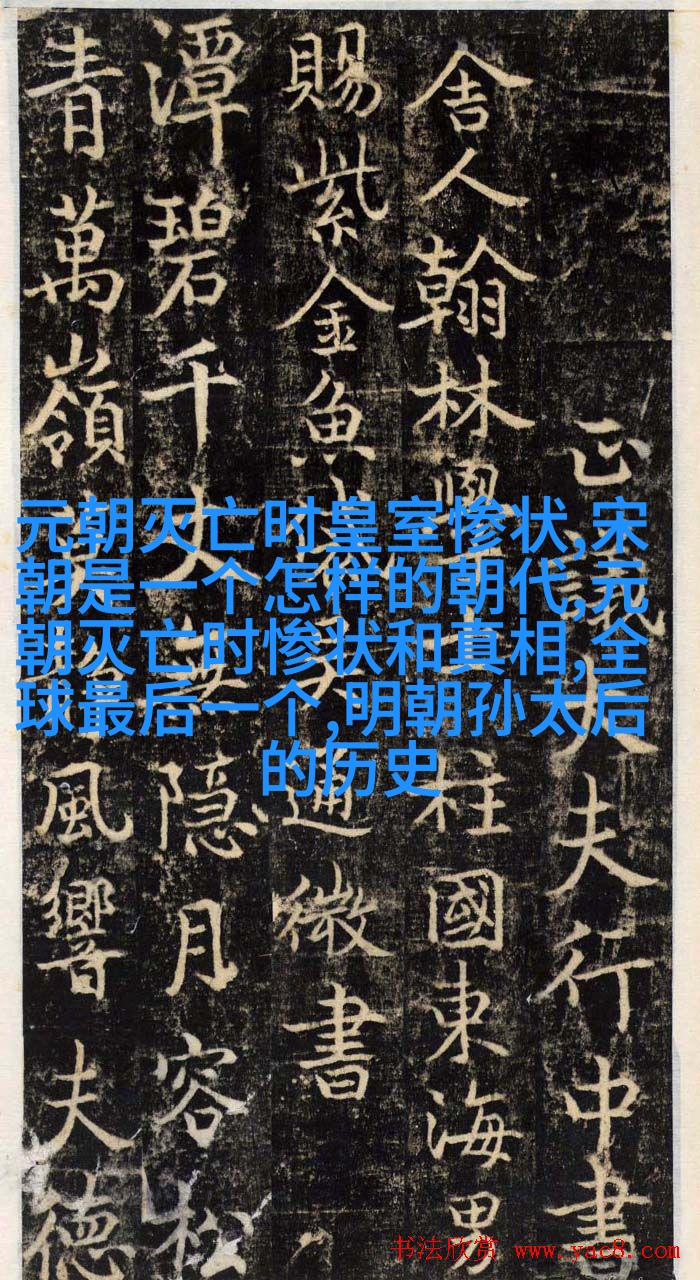 元朝灭亡时皇室惨状,宋
朝是一个怎样的朝代,元
朝灭亡时惨状和真相,全
球最后一个,明朝孙太后
的历史
正議大夫行中書
舍人翰林學柱國東海男
賜紫金魚通微書
潭碧千丈無隱月容松
青萬嶺風響夫德
书法欣赏 www.yac8.com